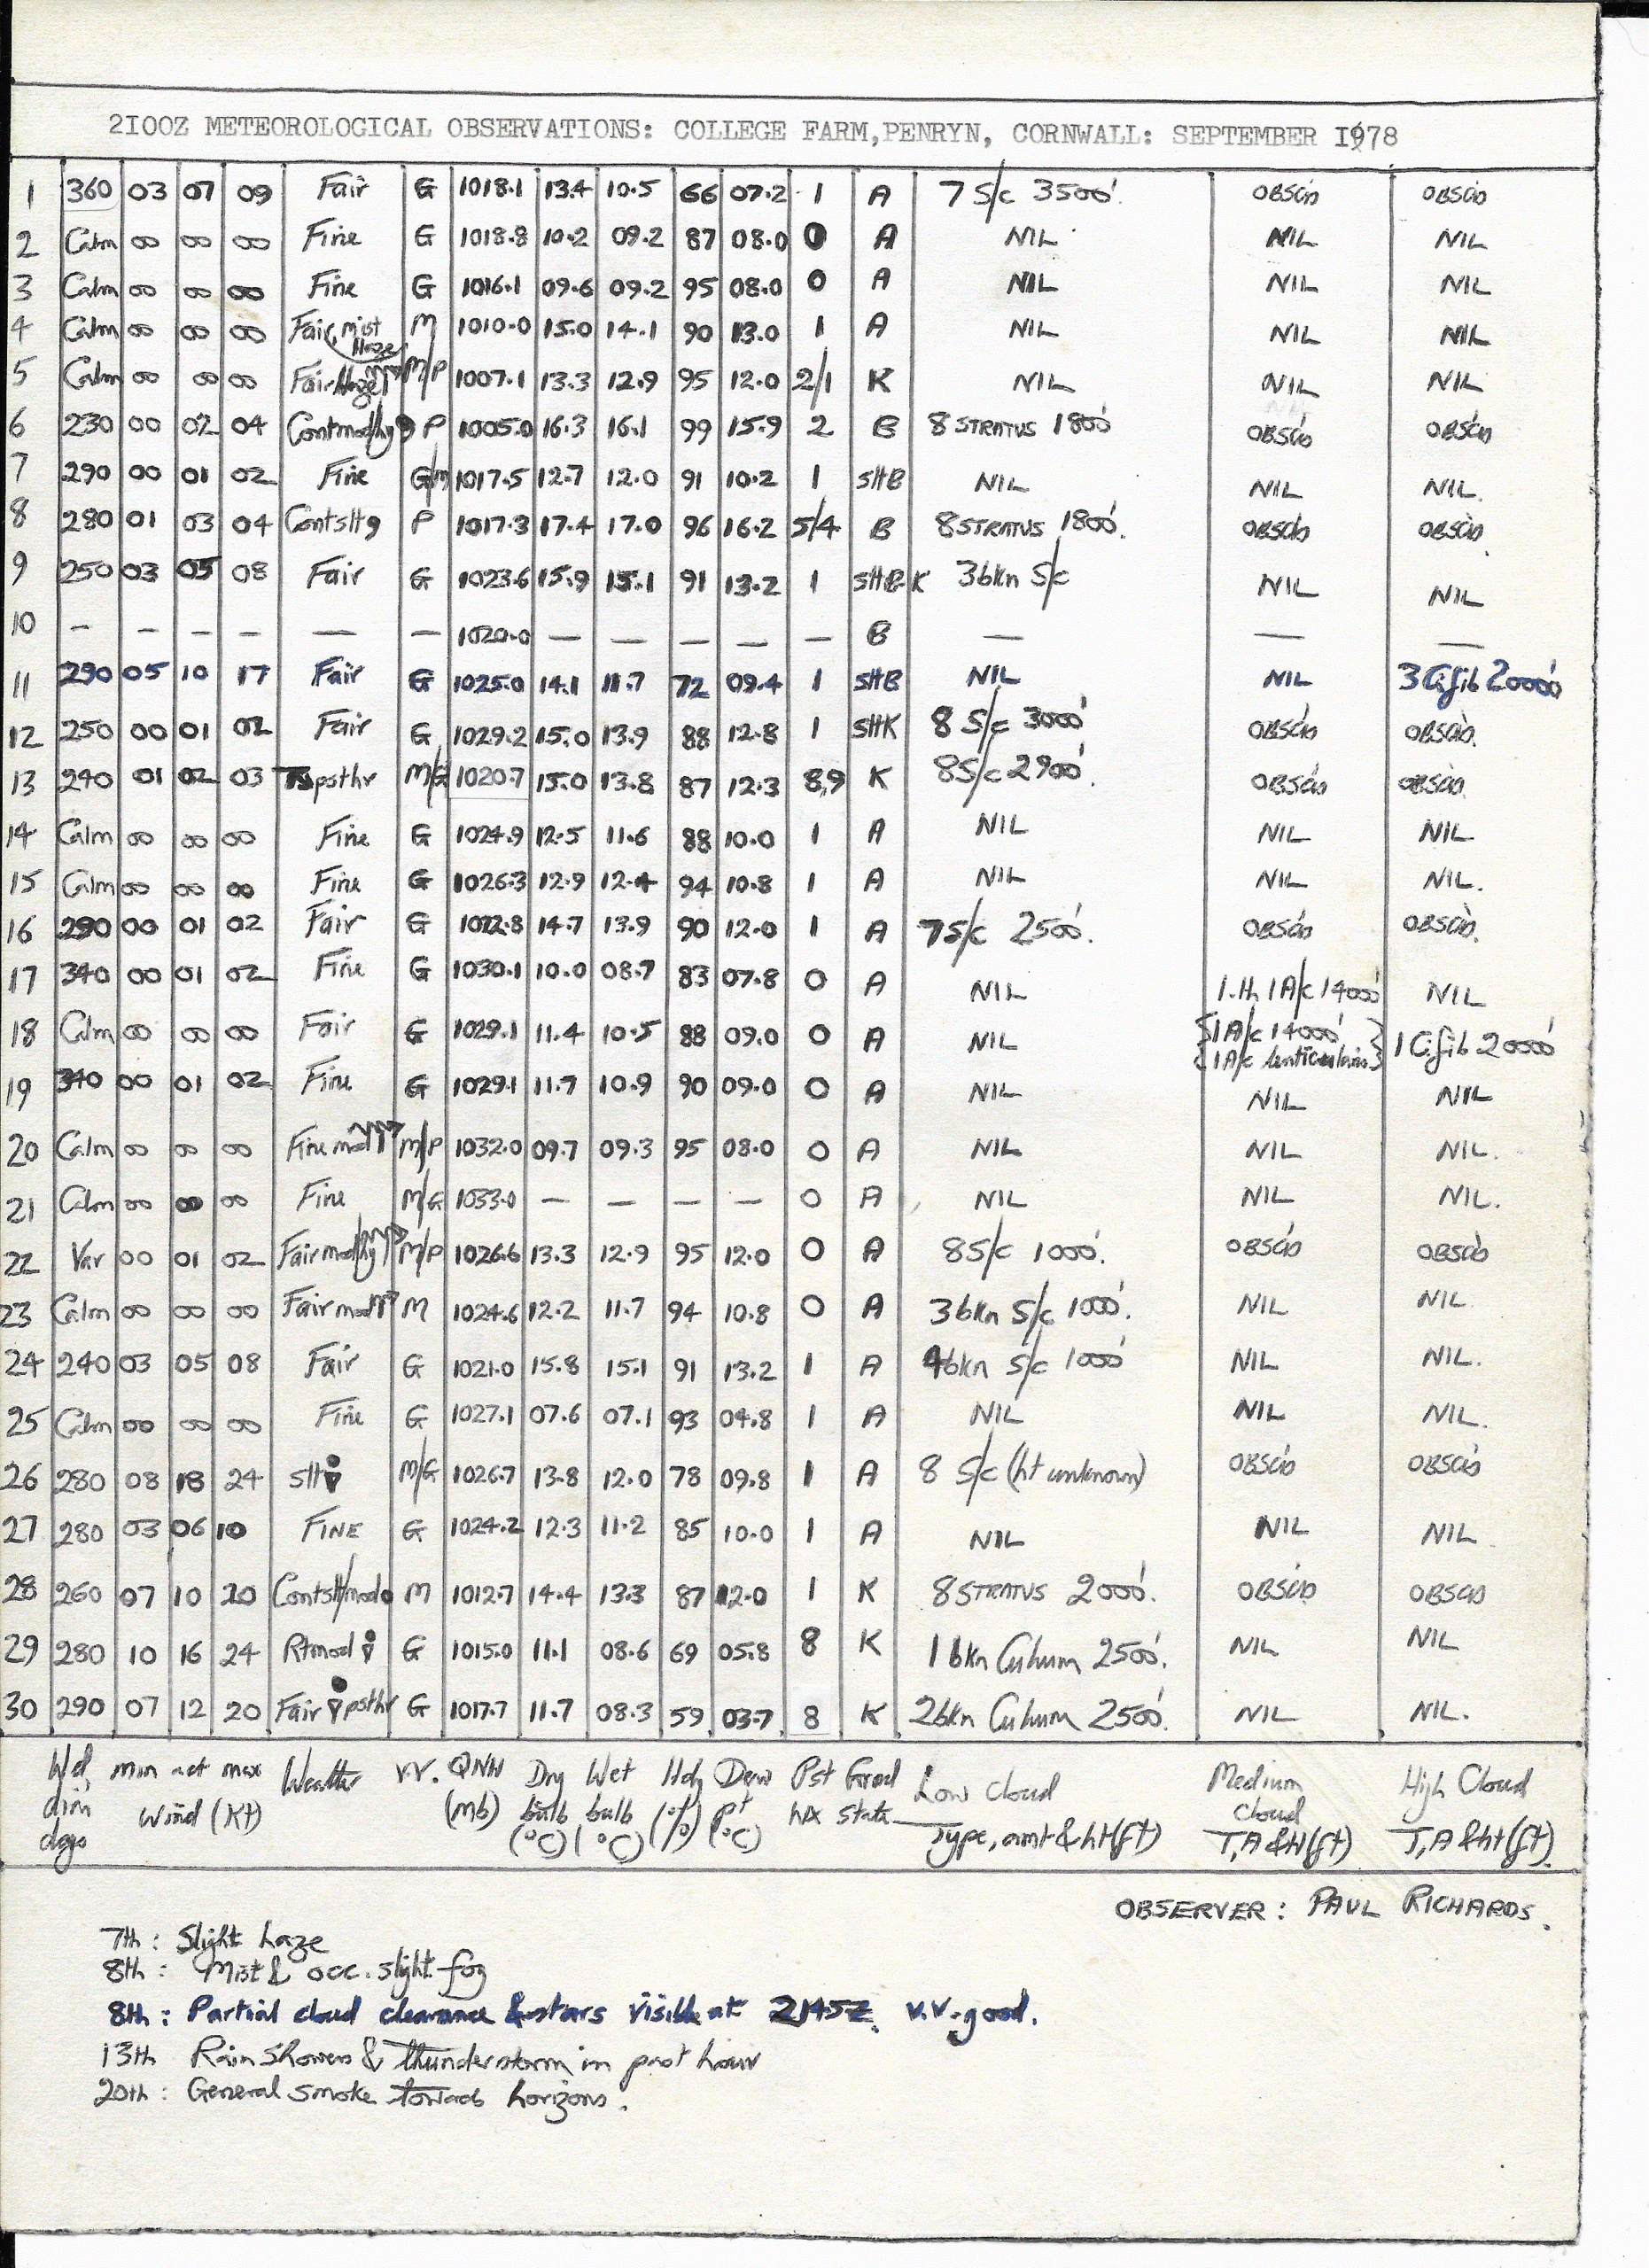 2I00Z METEOROLOGICAL OBSERVATIONS: COLLEGE FARM,PENRYN, CORNWALL: SEPTEMBER I978
1 360 03 07 09 Fair G 1018.1 13.4 10.5 66 07.2 1 A 7 S/c 3500'. OBSCD OBSCD
2 Calm 00 00 00 Fine G 1018.8 10.2 09.2 87 08.0 0 A NIL NIL NIL
3 Calm 00 00 00 Fine G 1016.1 09.6 09.2 95 08.0 0 A NIL NIL NIL
4 Calm 00 00 00 Fair, mist Haze M 1010.0 15.0 14.1 90 13.0 1 A NIL NIL NIL
5 Calm 00 00 00 Fair Haze M/P 1007.1 13.3 12.9 95 12.0 2/1 K NIL NIL NIL
6 230 00 02 04 Contmodhy P 1005.0 16.3 16.1 99 15.9 2 B 8 STRATUS 1800' OBSCD OBSCD
7 290 00 01 02 Fine G/M 1017.5 12.7 12.0 91 10.2 1 SHB NIL NIL NIL.
8 280 01 03 04 Contslt9 P 1017.3 17.4 17.0 96 16.2 5/4 B 8 STRATUS 1800'. OBSCD OBSCD
9 250 03 05 08 Fair G 1023.6 15.9 15.1 91 13.2 1 SHB-K 3bkn S/c NIL NIL
10 – – – – — — 1020.0 — — — — — B — — —
11 290 05 10 17 Fair G 1025.0 14.1 11.7 72 09.4 1 SHB NIL NIL 3 Cifib 20000'
12 250 00 01 02 Fair G 1029.2 15.0 13.9 88 12.8 1 SHK 8 S/c 3000' OBSCD OBSCD.
13 240 01 02 03 TSpsthr M/G 1020.7 15.0 13.8 87 12.3 8,9 K 8S/c 2900'. OBSCD OBSCD
14 Calm 00 00 00 Fine G 1024.9 12.5 11.6 88 10.0 1 A NIL NIL NIL.
15 Calm 00 00 00 Fine G 1026.3 12.9 12.4 94 10.8 1 A NIL NIL NIL.
16 290 00 01 02 Fair G 1022.8 14.7 13.9 90 12.0 1 A 7S/c 2500'. OBSCD OBSCD.
17 340 00 01 02 Fine G 1030.1 10.0 08.7 83 07.8 0 A NIL 1.th 1A/c 14000' NIL
18 Calm 00 00 00 Fair G 1029.1 11.4 10.5 88 09.0 0 A NIL {1A/c 14000' 1A/c lenticularis} 1 Cifib 20000'
19 340 00 01 02 Fine G 1029.1 11.7 10.9 90 09.0 0 A NIL NIL NIL
20 Calm 00 00 00 Fine mod M/P 1032.0 09.7 09.3 95 08.0 0 A NIL NIL NIL.
21 Calm 00 00 00 Fine M/G 1033.0 — — — — 0 A NIL NIL NIL.
22 Var 00 01 02 Fair modhy M/P 1026.6 13.3 12.9 95 12.0 0 A 8S/c 1000'. OBSCD OBSCD
23 Calm 00 00 00 Fair mod M 1024.6 12.2 11.7 94 10.8 0 A 3bkn S/c 1000'. NIL NIL
24 240 03 05 08 Fair G 1021.0 15.8 15.1 91 13.2 1 A 4bkn S/c 1000' NIL NIL.
25 Calm 00 00 00 Fine G 1027.1 07.6 07.1 93 04.8 1 A NIL NIL NIL.
26 280 08 18 24 slt M/G 1026.7 13.8 12.0 78 09.8 1 A 8 S/c (ht unknown) OBSCD OBSCD
27 280 03 06 10 FINE G 1024.2 12.3 11.2 85 10.0 1 A NIL NIL NIL
28 260 07 10 20 Contslt/mod M 1012.7 14.4 13.3 87 12.0 1 K 8 STRATUS 2000'. OBSCD OBSCD
29 280 10 16 24 Rtmod G 1015.0 11.1 08.6 69 05.8 8 K 1 bkn Cuhum 2500'. NIL NIL
30 290 07 12 20 Fair psthr G 1017.7 11.7 08.3 59 03.7 8 K 2bkn Cuhum 2500'. NIL NIL.
Wd min act max Weather V.V. QNH Dry Wet Hdy Dew Pst Grnd Low Cloud Medium High Cloud
dirn Wind (Kt) (Mb) bulb bulb (%) pt WX State Cloud
dgs (°C) (°C) (°C) Type, amt & ht(ft) T,A &H(ft) T,A &ht(ft).
OBSERVER: PAUL RICHARDS.
7th: Slight haze
8th: Mist & occ. slight fog
8th: Partial cloud clearance & stars visible at 2145Z. V.V. good.
13th Rain Showers & thunderstorm in past hour
20th: General smoke towards horizons.